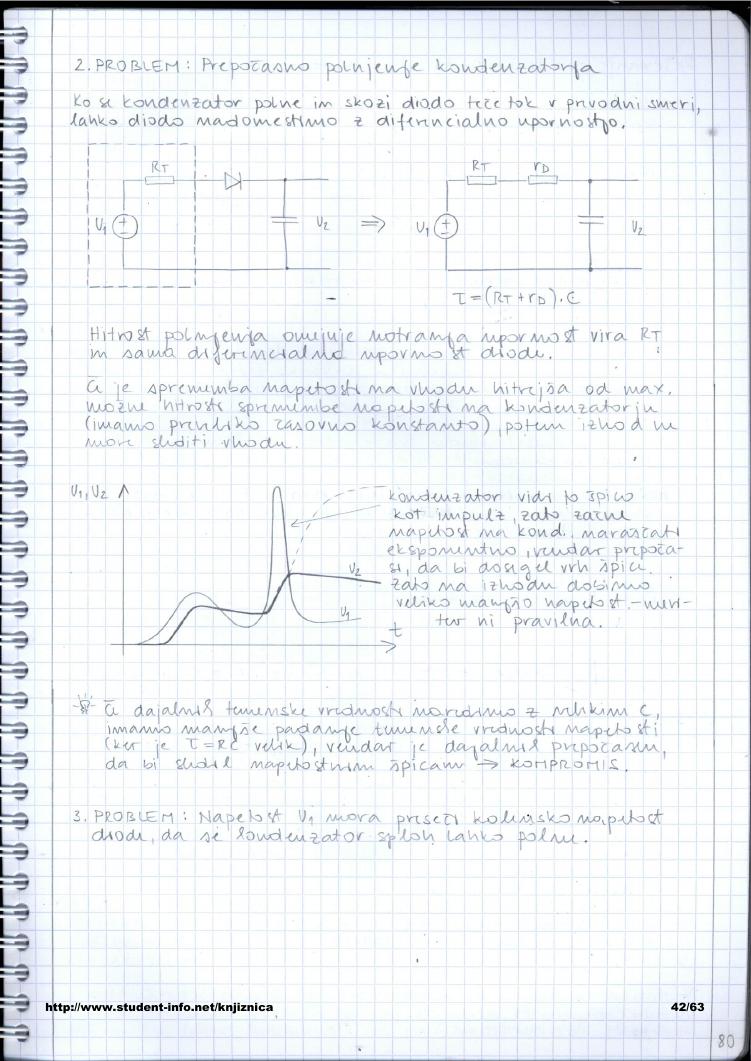 2. PROBLEM: Prepočasno polnjenje kondenzatorja
Ko se kondenzator polne in skozi diodo teče tok v prevodni smeri,
lahko diodo nadomestimo z diferencialno upornostjo.
RT
U1
U2
⇒
RT
rD
U1
U2
τ = (RT + rD) · C
Hitrost polnjenja omejuje notranja upornost vira RT
in sama diferencialna upornost diode.
Če je sprememba napetosti na vhodu hitrejša od max.
možne hitrosti spremembe napetosti na kondenzatorju
(imamo preveliko časovno konstanto), potem izhod ne
more slediti vhodu.
U1, U2
kondenzator vidi to špico
kot impulz, zato začne
napetost na kond. naraščati
eksponentno, vendar prepoča-
si, da bi dosegel vrh špice.
Zato na izhodu dobimo
veliko manjšo napetost - meri-
tev ni pravilna.
U2
U1
t
Če dajalnik temenske vrednosti naredimo z velikim C,
imamo manjše padanje temenske vrednosti napetosti
(ker je τ = RC velik), vendar je dajalnik prepočasen,
da bi sledil napetostnim špicam → KOMPROMIS.
3. PROBLEM: Napetost U1 mora preseči kolensko napetost
diode, da se kondenzator sploh lahko polne.
http://www.student-info.net/knjiznica
42/63
80